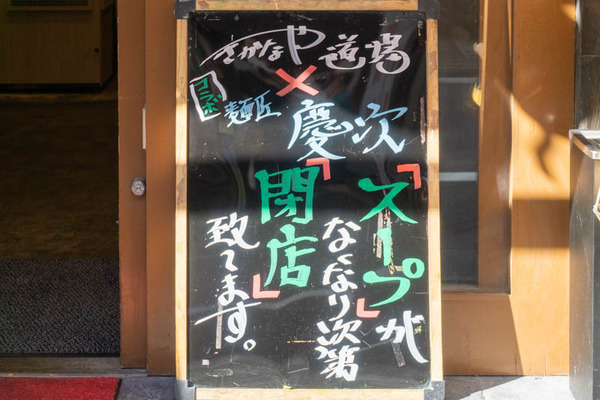 さかなや道場
×
コラボ
麺匠
慶次
「スープ」が
なくなり次第
「閉店」
致てます。